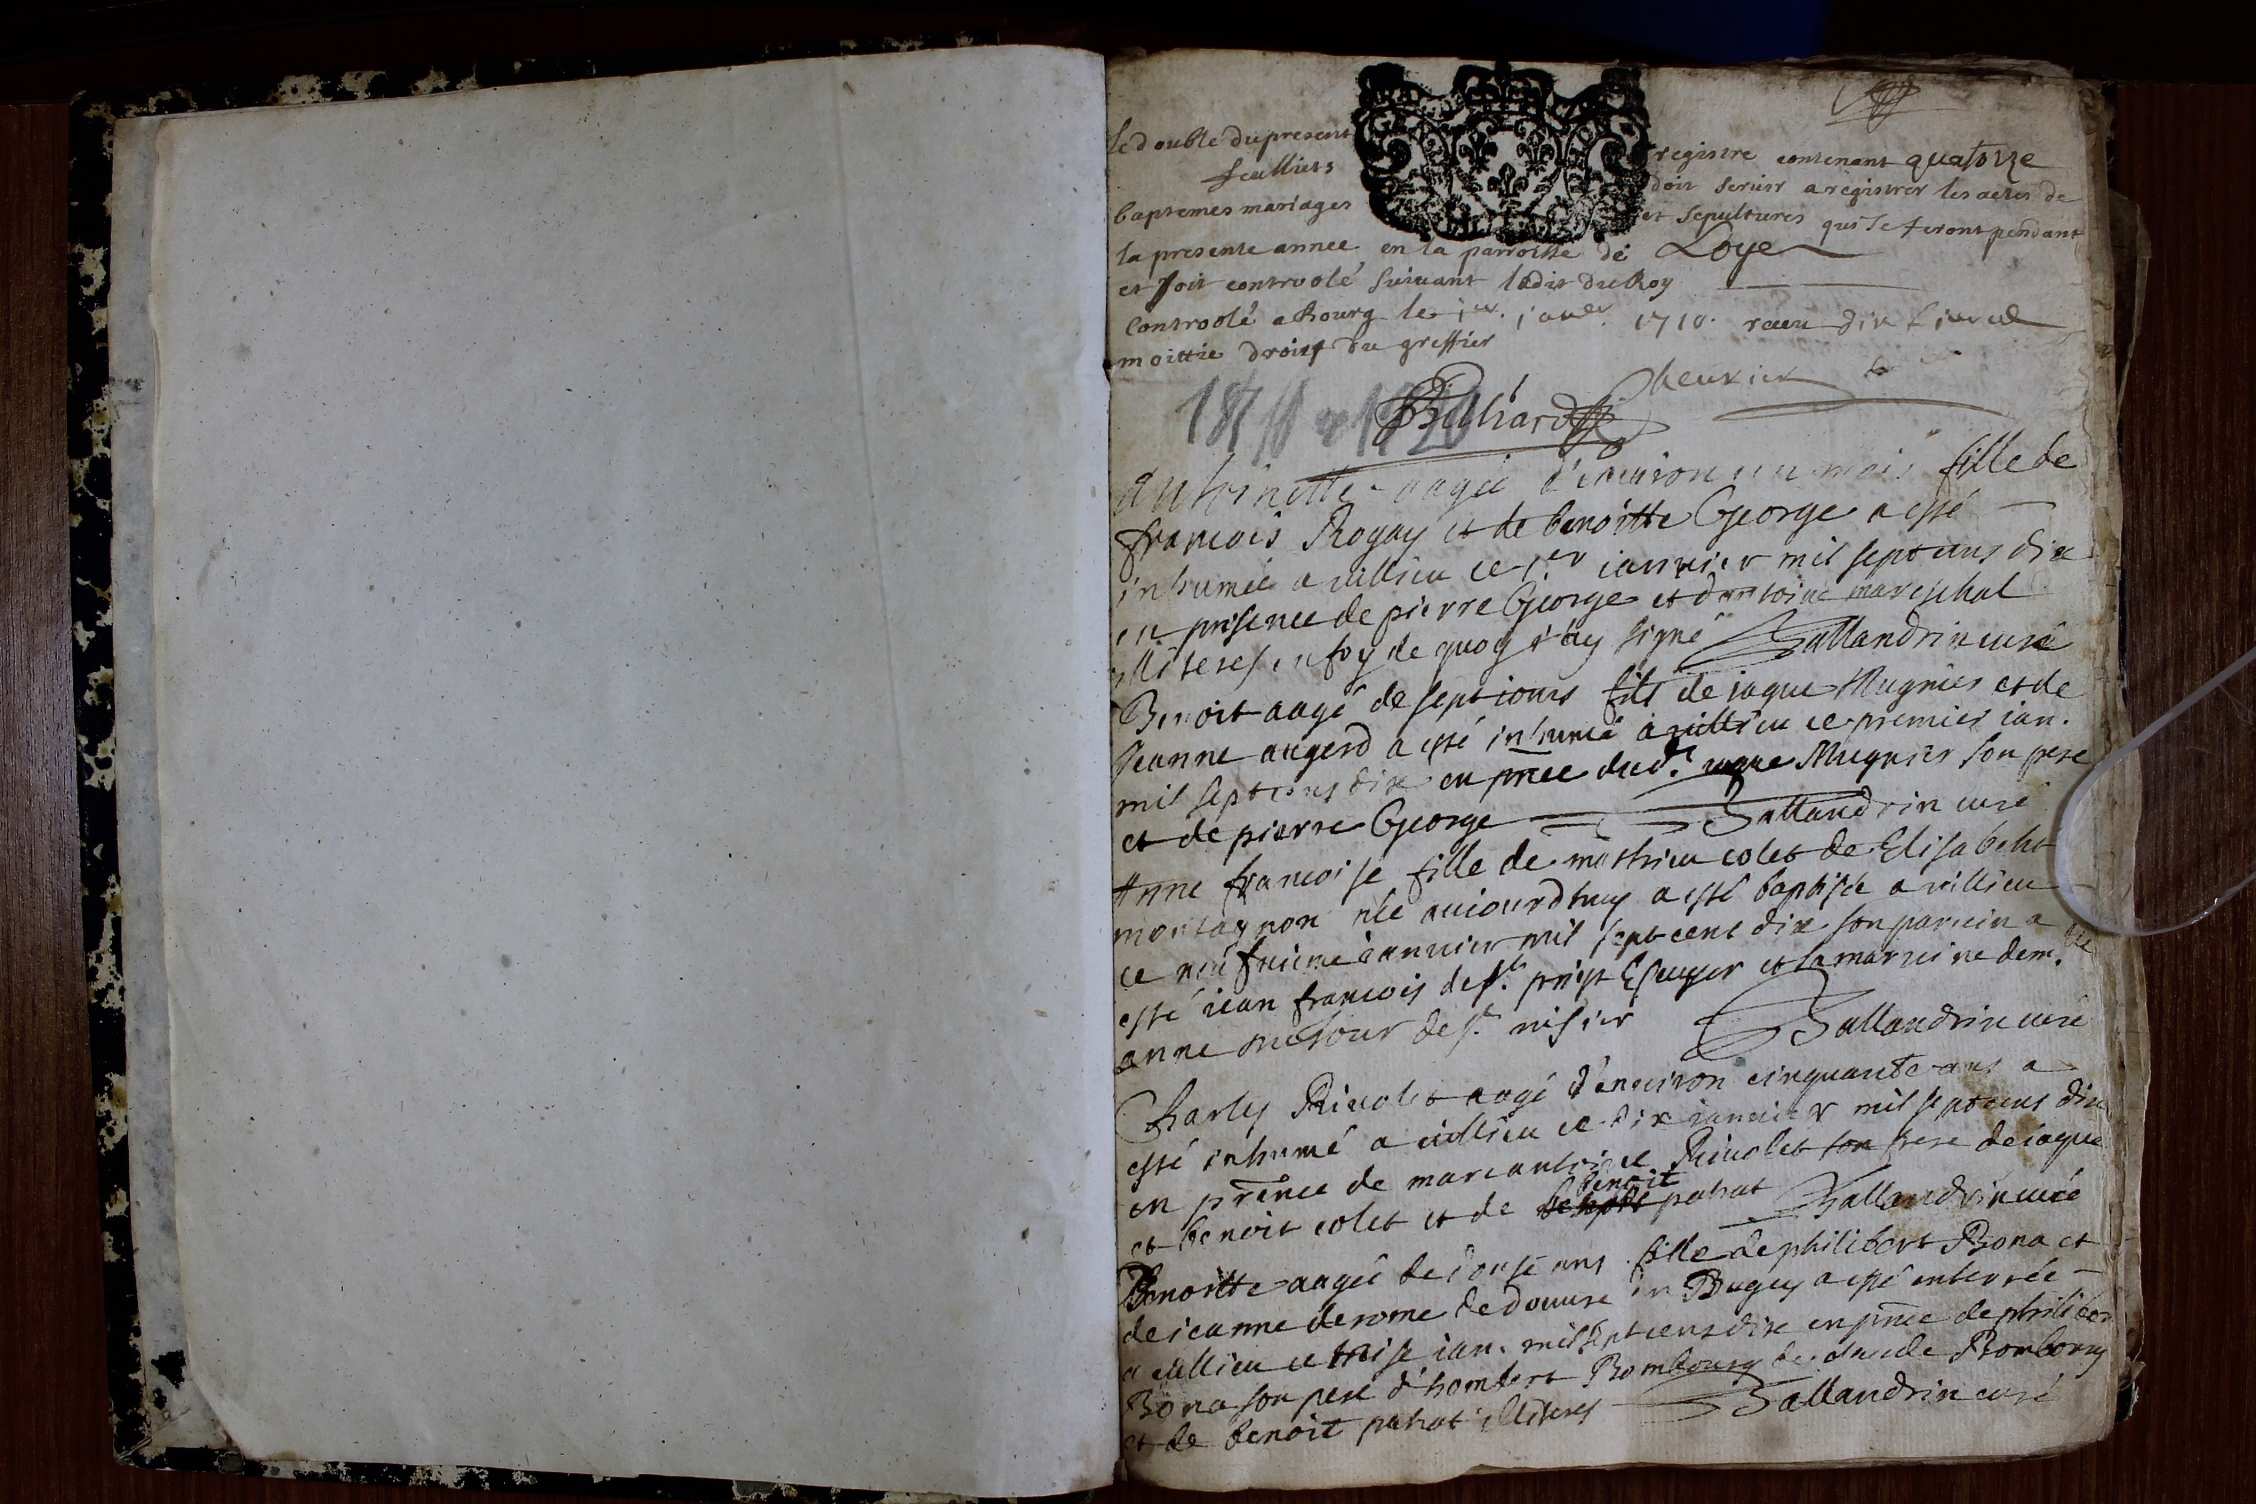 Le double du present registre contenant quatorze
feuillets doit servir a registrer les actes de
baptemes mariages et sepultures qui se feront pendant
la presente annee en la parroisse de Loye
et soit controolé suivant ledit du Roy
Controolé a Bourg le 1er. janer. 1710. receu dix
moittié droits du greffier
Cheurier
antoinette aagée d'environ un mois fille de
francois Rogay et de benoitte George a esté
inhumée a villieu ce 1er ianvier mil sept cens dix
en presence de pierre George et d'antoine mareschal
illiteres en foy de quoy i'ay signé Ballandrin curé
Benoit aagé de sept iours fils de iaque Mugnier et de
Jeanne augerd a esté inhumé a villieu ce premier ian.
mil sept cens dix en pnce dud. iaque Mugnier son pere
et de pierre George Ballandrin curé
Anne francoise fille de mathieu colet de Elisabeht
montagnon née auiourdhuy a esté baptisée a villieu
ce neufvieme ianvier mil sept cent dix son parrein a
esté iean francois de st. Escuyer et sa marreine demlle
anne de st. nisier Ballandrin curé
Charles Rivolet aagé d'environ cinquante ans a
esté inhumé a villieu ce dix ianvier mil sept cens dix
en prénce de marc antoine Rivolet son frere de iaque
et benoit colet et de benoit pahat Ballandrin curé
Benoitte aagée de douse ans fille de philibert Bona et
de ieanne derome de douvre en Bugey a esté enterrée
a villieu ce treise ian. mil sept cens dix en pnce de philiber
Bona son pere d'hombert Bombourg de claude Bombourg
et de benoit pahat illiteres Ballandrin curé